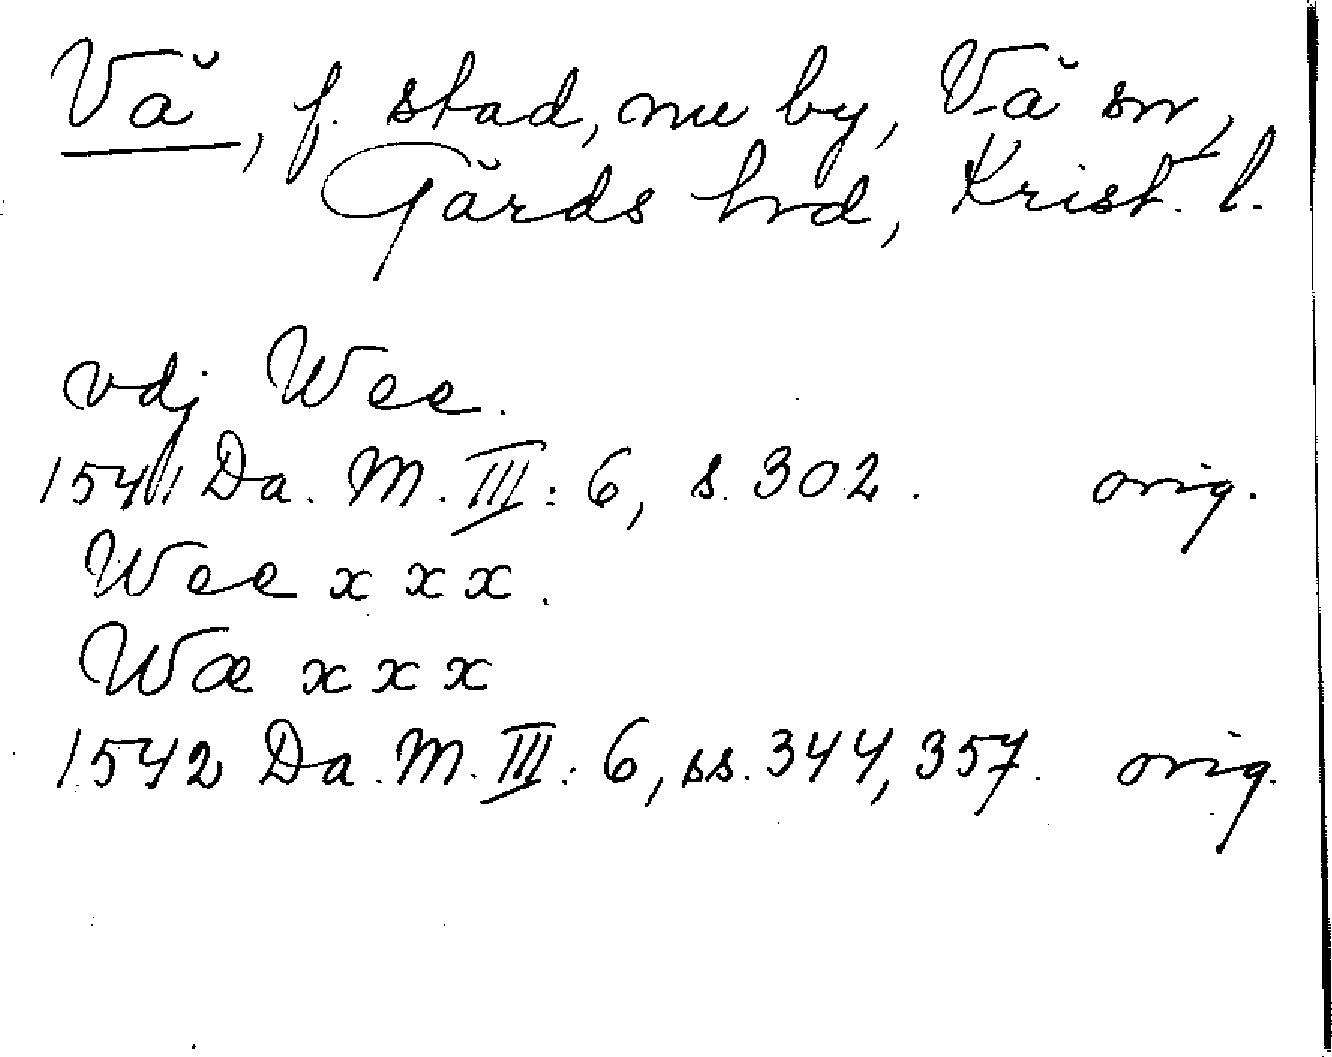 Vä, f. stad, nu by, Vä sn,
Gärds hrd, Krist. l.
vdj Wee.
1541 Da. M. III: 6, s. 302. orig.
Wee x x x.
Wæ x x x
1542 Da. M. III: 6, ss. 344, 357. orig.